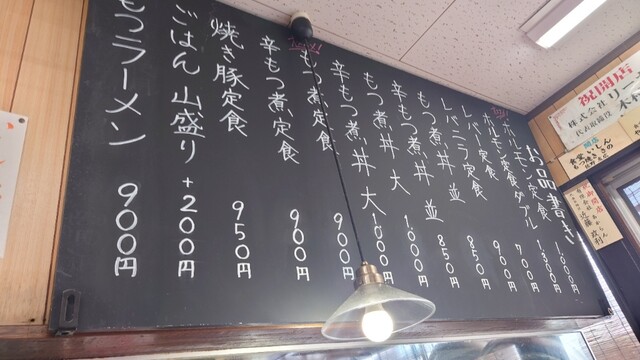 お品書き
ホルモン定食 1,000円
ホルモン定食ダブル 1,300円
レバー定食 700円
レバニラ定食 900円
もつ煮丼 並 850円
辛もつ煮丼 並 850円
もつ煮丼 大 1,000円
辛もつ煮丼 大 1,000円
もつ煮定食 900円
辛もつ煮定食 900円
焼き豚定食 950円
ごはん山盛り +200円
もつラーメン 900円
祝開店
株式会社リー
代表取締役 木
近藤政利